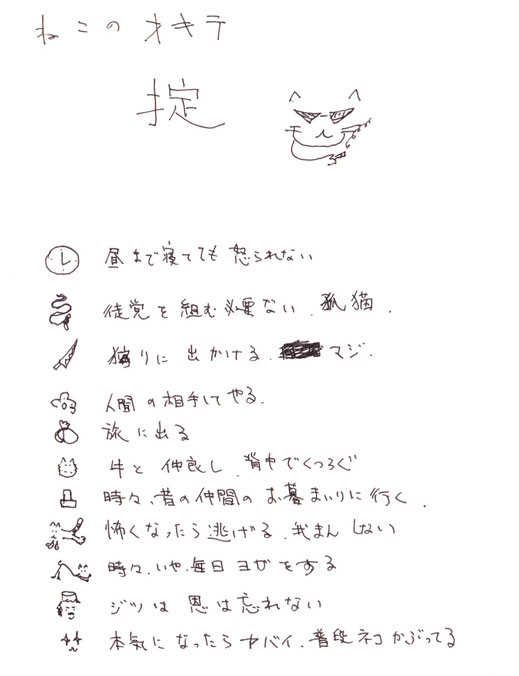 ねこのオキテ
掟
昼まで寝てても怒られない
徒党を組む必要ない、孤猫.
狩りに出かける. マジ.
人間の相手してやる.
旅に出る
牛と仲良し、背中でくつろぐ
時々、昔の仲間のお墓まいりに行く.
怖くなったら逃げる、がまんしない
時々、いや、毎日ヨガをする
ジツは恩は忘れない
本気になったらヤバイ、普段ネコかぶってる